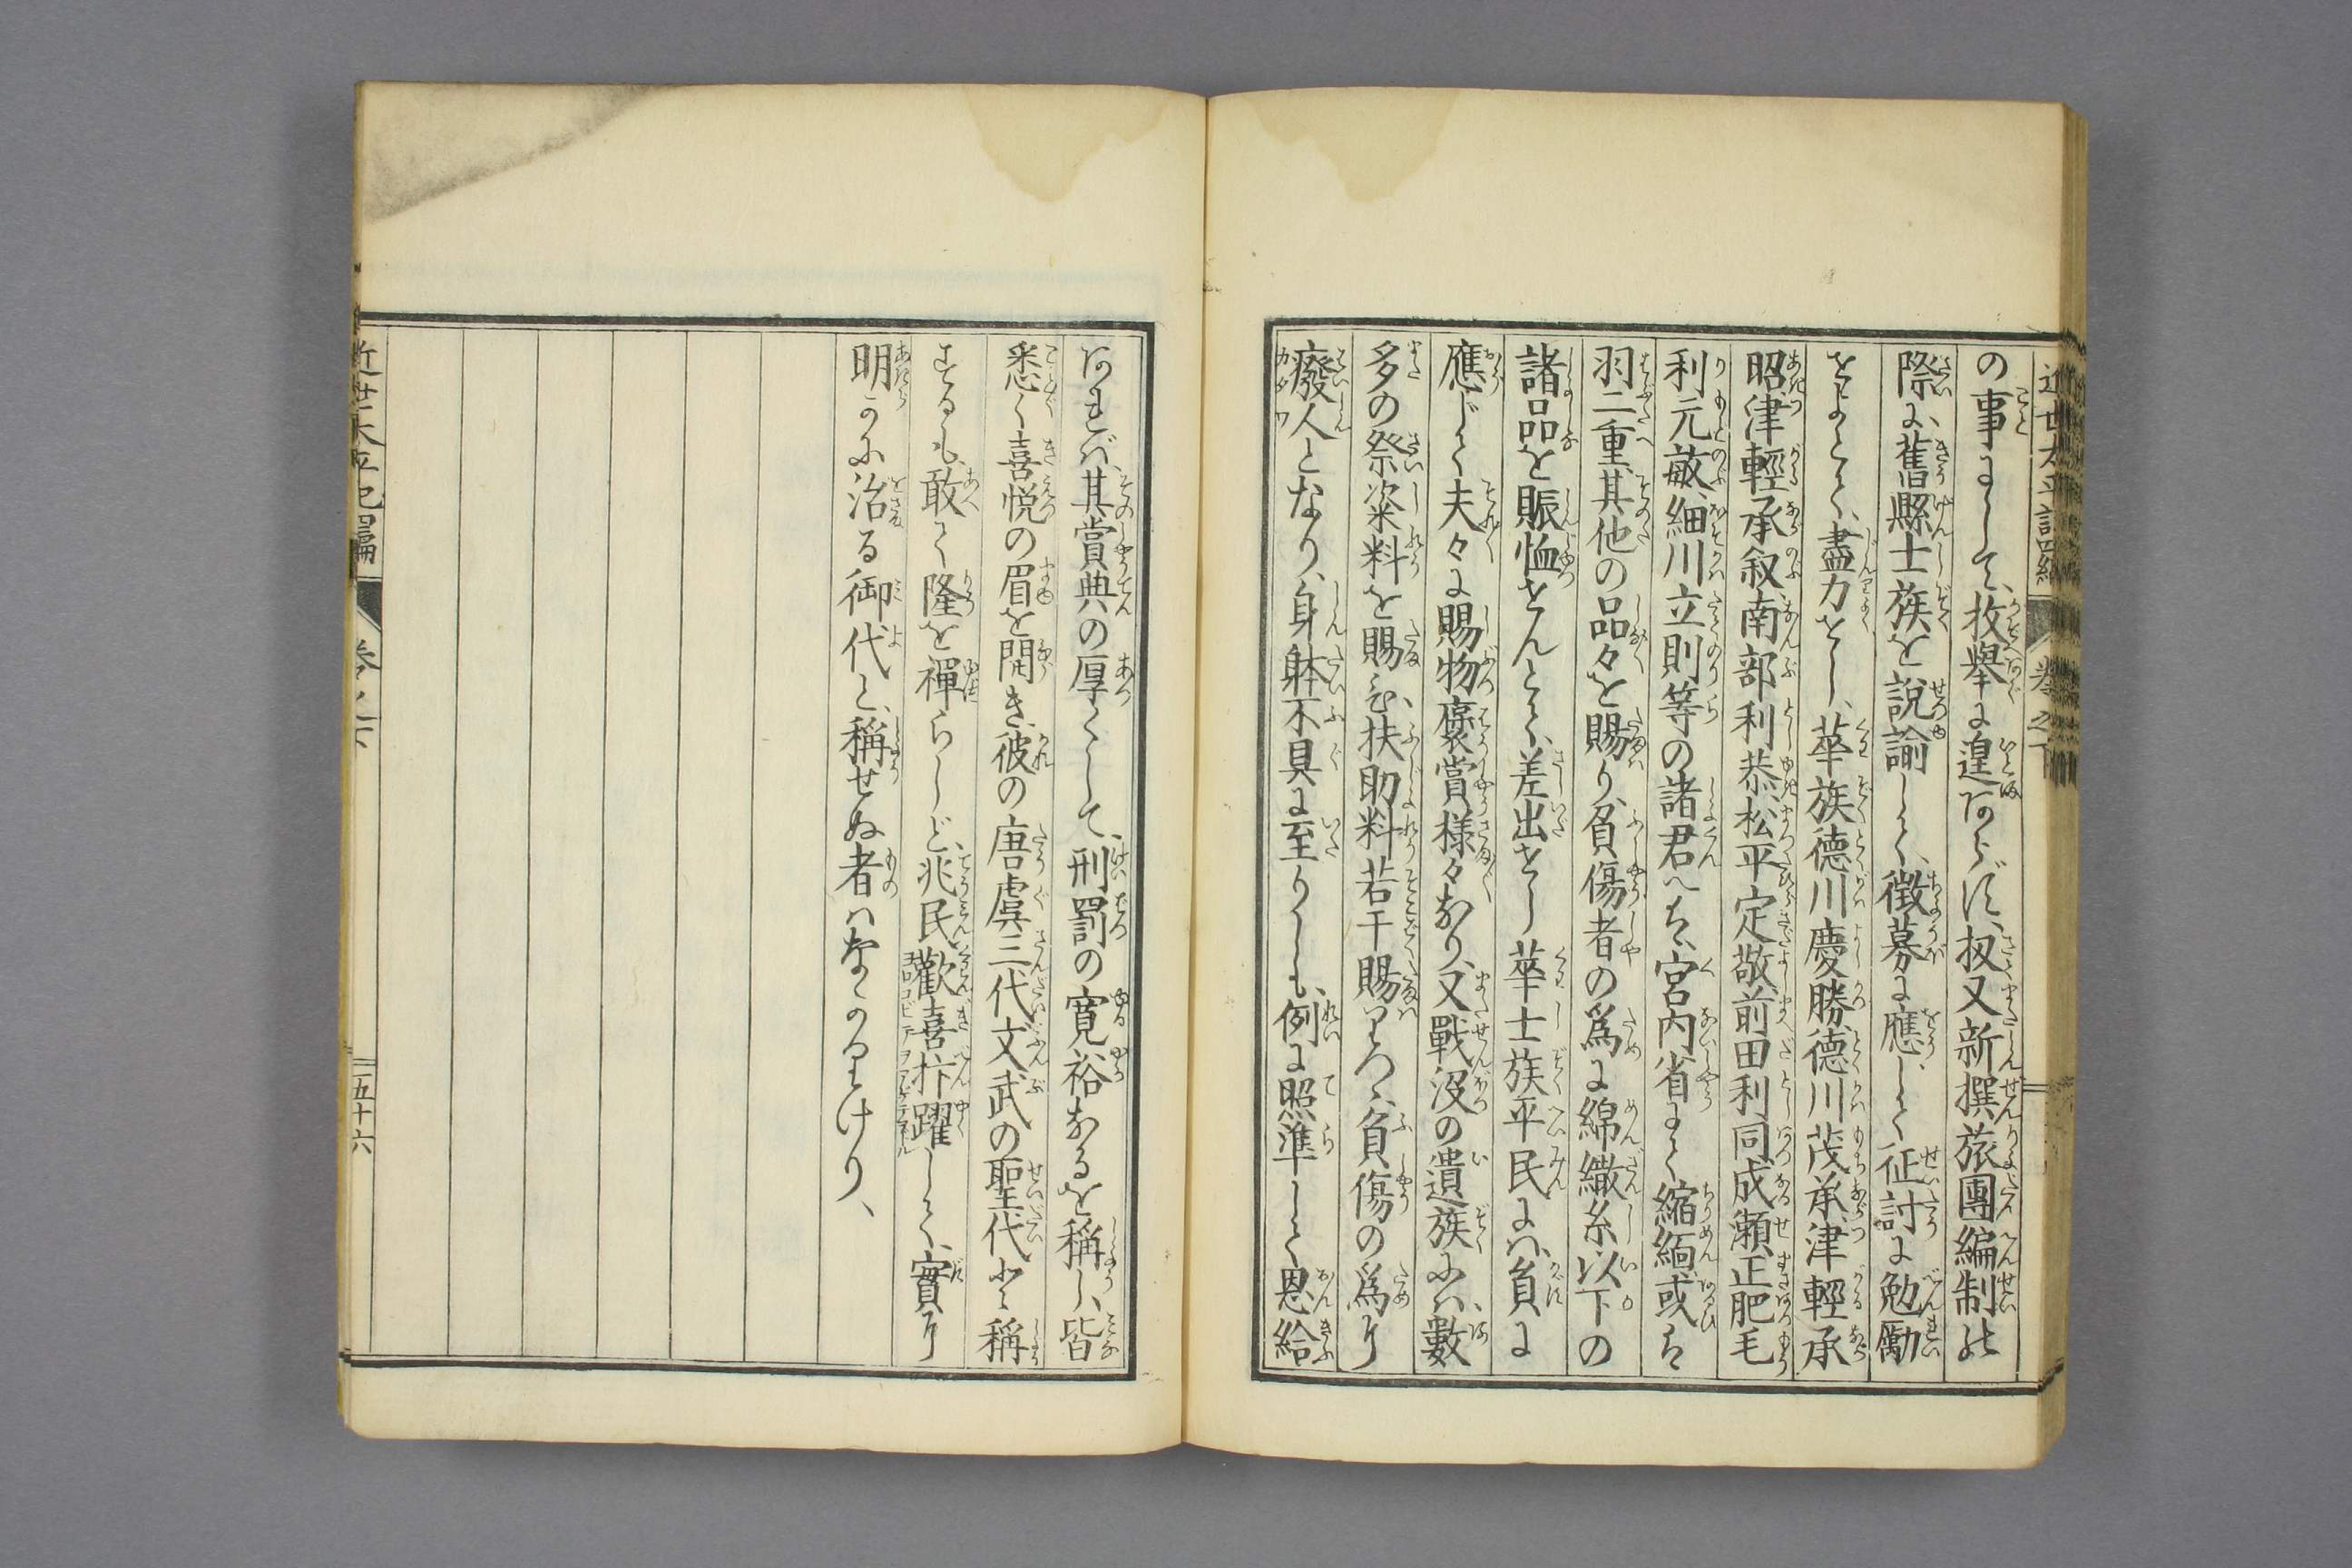 の事にして、枚擧に遑あらず、扨又新撰旅團編制の
際に、舊縣士族を說諭して、徴募に應して征討に勉勵
をなして、盡力をし、華族德川慶勝、德川茂承、津輕承
昭、津輕承叙、南部利恭、松平定敬、前田利同、成瀬正肥、毛
利元敏、細川立則等の諸君へも、宮内省にて縮緬或は
羽二重其他の品々を賜り、負傷者の爲に綿繖糸以下の
諸品を賑恤せんとて、差出せし華士族平民には、負に
應じて夫々に賜物褒賞樣々あり、又戰沒の遺族には、數
多の祭粢料を賜ひ、扶助料若干賜はりつゝ、負傷の爲に
廢人となり、身躰不具に至りしも、例に照準して恩給
あれば、其賞典の厚くして、刑罰の寛裕なるを稱し、皆
悉く喜悦の眉を開き、彼の唐虞三代文武の聖代と稱
するも、敢て隆を禪らしと、兆民歡喜抃躍して、實に
明かに治る御代と、稱せぬ者はなかりけり、
近世太平記三編 巻之下 五十六